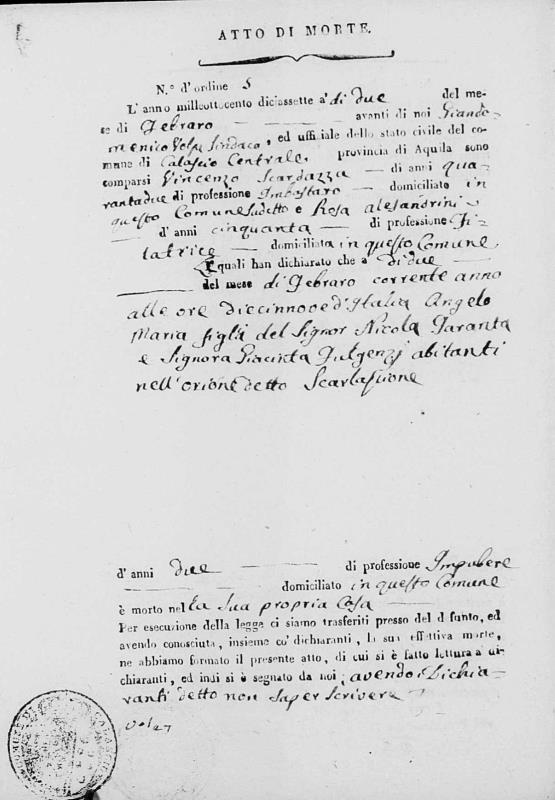 ATTO DI MORTE.
N.° d'ordine 5
L'anno millcottocento diciassette a' di due del me-
se di Febraro avanti di noi Giando-
menico Volpe Sindaco, ed uffiziale dello stato civile del co-
mune di Calascio Centrale, provincia di Aquila sono
comparsi Vincenzo Scardazza di anni qua-
rantadue di professione Impostaro domiciliato in
questo Comune sudetto e Rosa Alesandrini
d'anni cinquanta di professione Fi-
latrice domiciliata in questo Comune
E quali han dichiarato che a' di due
del mese di Febraro corrente anno
alle ore diecinnove d'Italia Angelo
Maria figli del Signor Nicola Taranta
e Signora Giacinta Fulgenzj abitanti
nell'orione detto
d'anni due di professione Impubere
domiciliato in questo Comune
è morto nel la sua propria Casa
Per esecuzione della legge ci siamo trasferiti presso del d funto, ed
avendo conosciuta, insieme co' dichiaranti, la sua effettiva morte,
ne abbiamo formato il presente atto, di cui si è fatto lettura a' di-
chiaranti, ed indi si è segnato da noi, avendo i Dichia-
ranti detto non saper scrivere